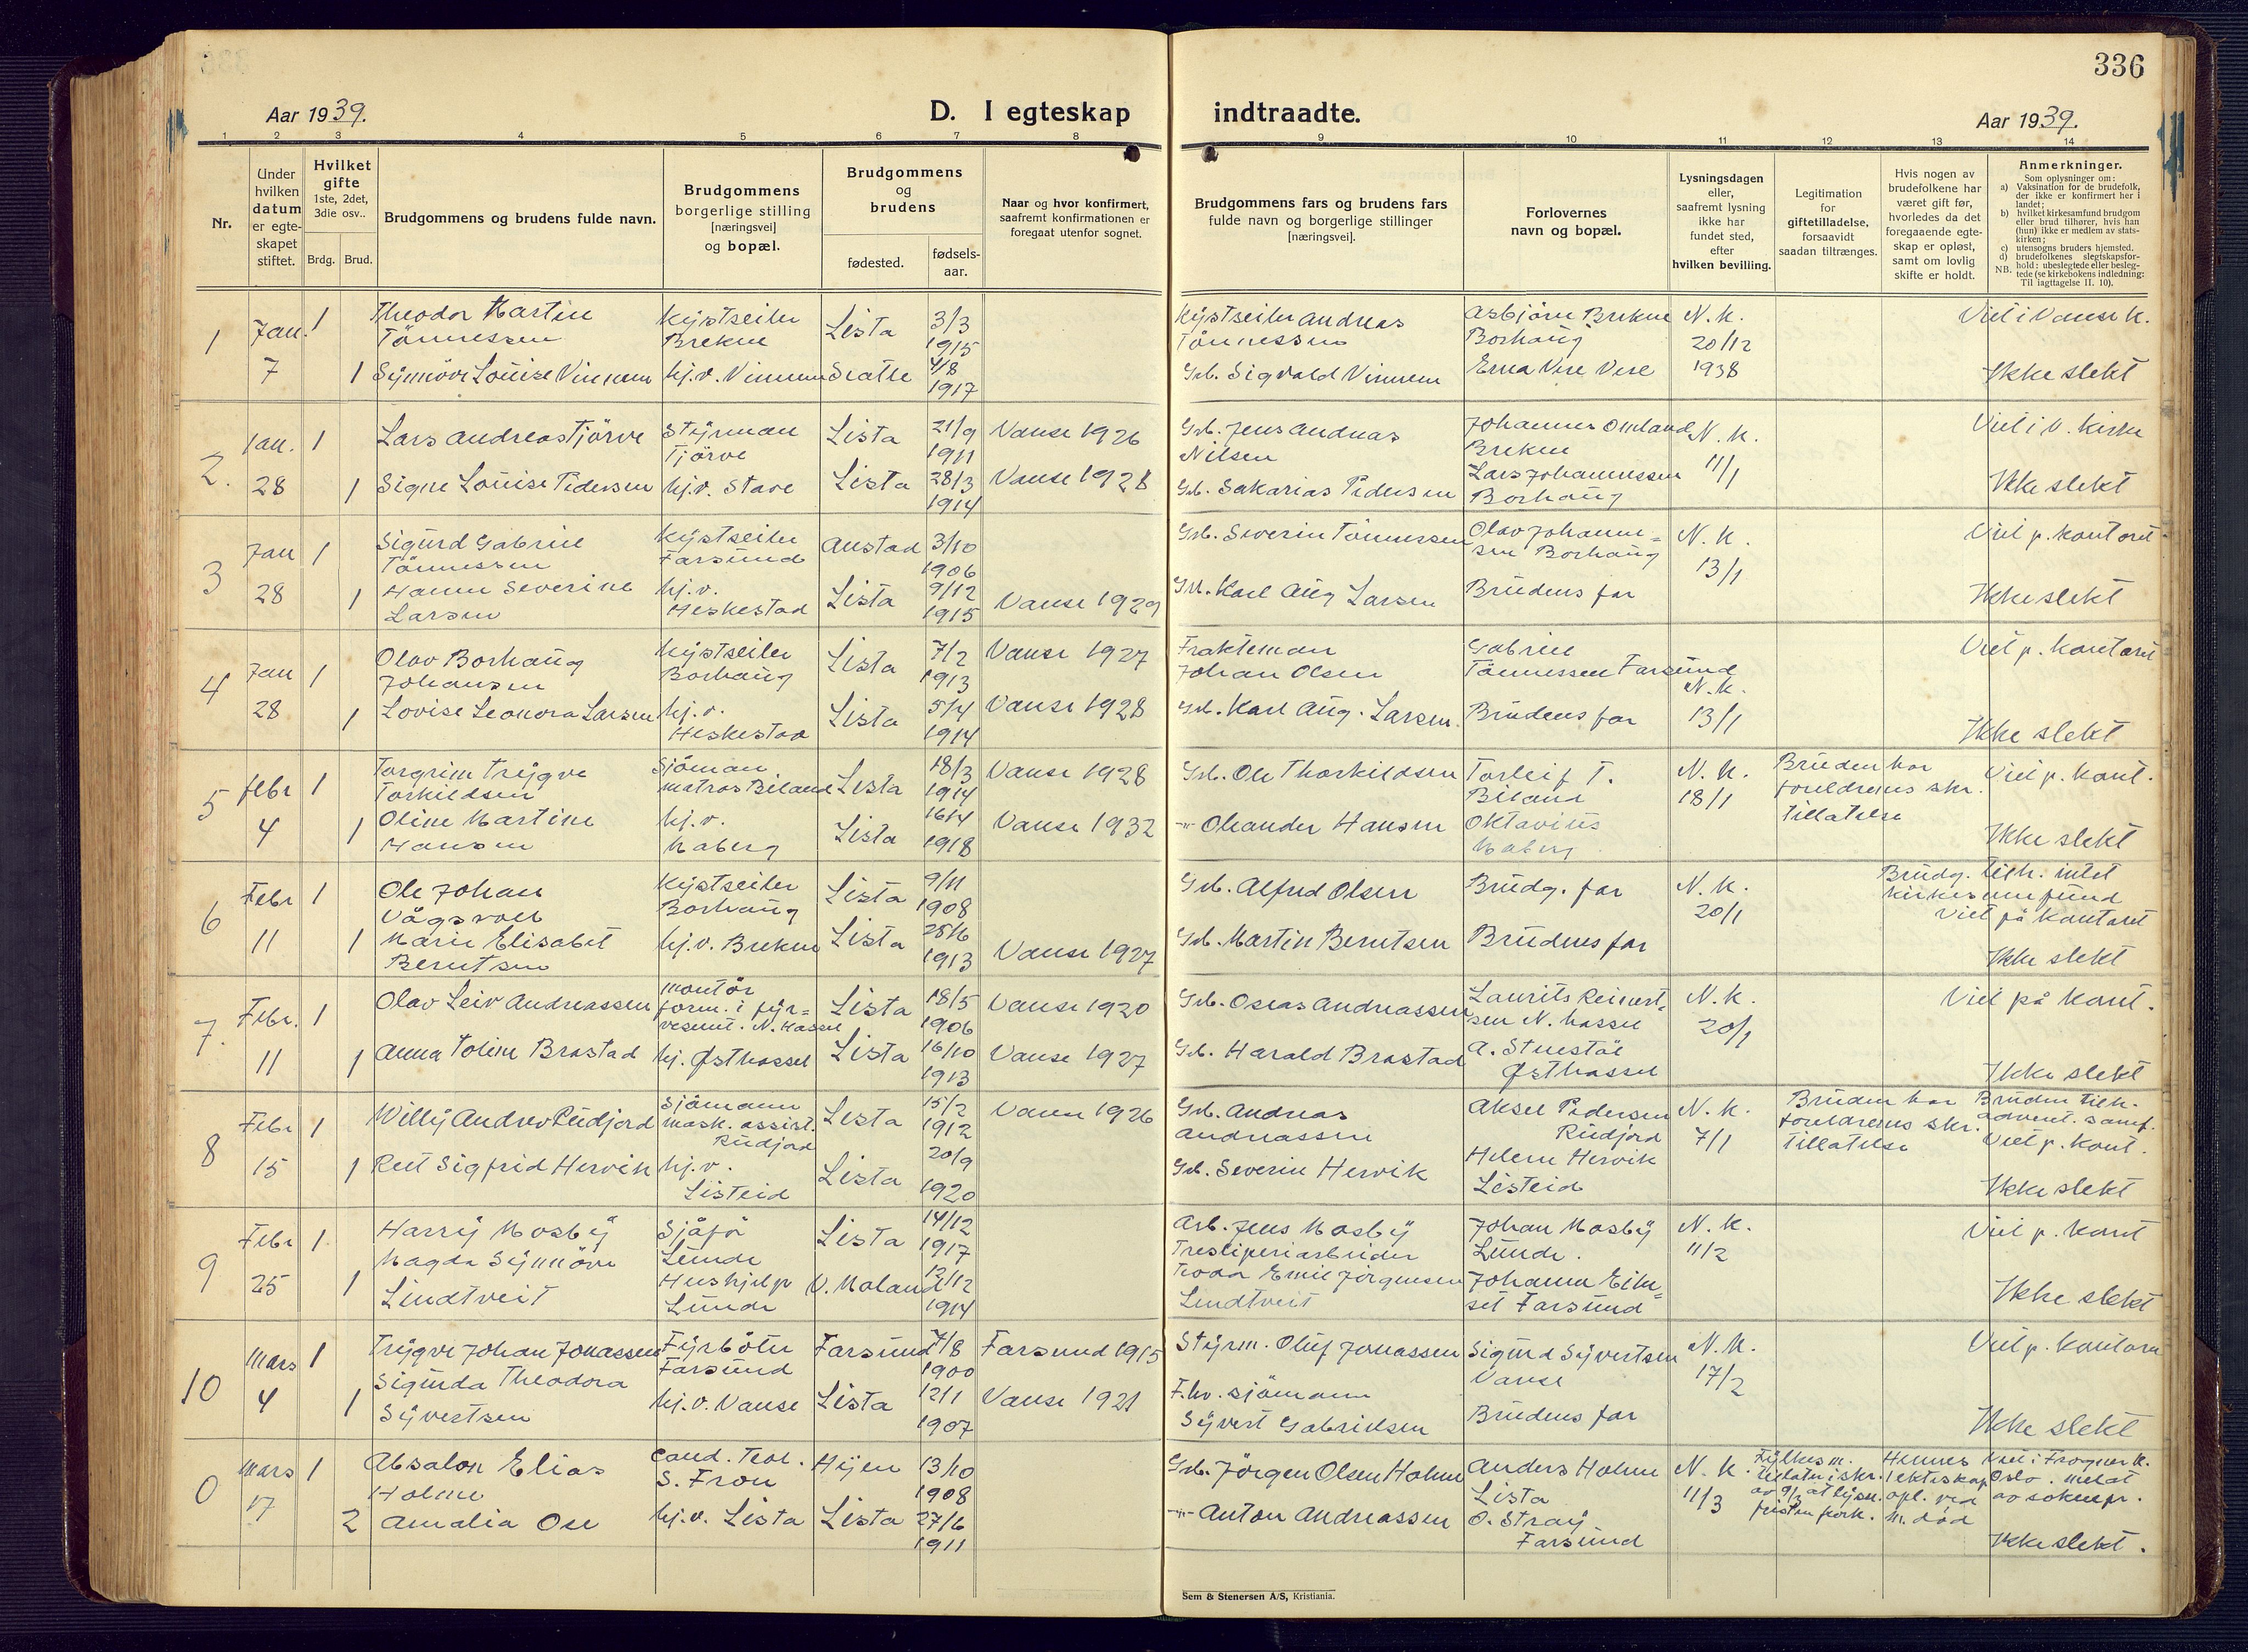 336
Aar 1939.
D. I egteskap
indtraadte.
Aar 1939.
1
2
3
4
5
6
7
8
9
10
11
12
13
14
Nr.
Under
hvilken
datum
er egte-
skapet
stiftet.
Hvilket
gifte
1ste, 2det,
3die osv..
Brdg.
Brud.
Brudgommens og brudens fulde navn.
Brudgommens
borgerlige stilling
[næringsvei]
og bopæl.
Brudgommens
og
brudens
fødested.
fødsels-
aar.
Naar og hvor konfirmert,
saafremt konfirmationen er
foregaat utenfor sognet.
Brudgommens fars og brudens fars
fulde navn og borgerlige stillinger
[næringsvei].
Forlovernes
navn og bopæl.
Lysningsdagen
eller,
saafremt lysning
ikke har
fundet sted,
efter
hvilken bevilling.
Legitimation
for
giftetilladelse,
forsaavidt
saadan tiltrænges.
Hvis nogen av
brudefolkene har
været gift før,
hvorledes da det
foregaaende egte-
skap er opløst,
samt om lovlig
skifte er holdt.
Anmerkninger.
Som oplysninger om:
a) Vaksination for de brudefolk,
der ikke er konfirmert her i
landet;
b) hvilket kirkesamfund brudgom
eller brud tilhører, hvis han
(hun) ikke er medlem av stats-
kirken;
c) utensogns bruders hjemsted.
d) brudefolkenes slegtskapsfor-
hold: ubeslegtede eller besleg-
NB. tede (se kirkebokens indledning:
Til iagttagelse II. 10).
1
Jan.
7
1
Theodor Martin
Tönnessen
Kystseiler
Brekne
Lista
3/3
1915
Kystseiler Andreas
Tönnessen
Asbjörn Brekne
Borhaug
N. K.
20/12
1938
Viet i Vanse K.
1
Synnöve Louise Vinnem
hj.v. Vinnem
Seatle
4/8
1917
Grb. Sigvald Vinnem
Erna Vere Vere
Ikke slekt
2.
Jan.
28
1
Lars Andreas Tjörve
Styrman
Tjörve
Lista
21/9
1911
Vanse 1926
Grb. Jens Andreas
Nilsen
Johannes Omland
Brekne
N. K.
11/1
Viet i V. Kirke
1
Signe Louise Pedersen
hj.v. Stave
Lista
28/3
1914
Vanse 1928
Grb. Sakarias Pedersen
Lars Johannessen
Borhaug
Ikke slekt
3
Jan
28
1
Sigurd Gabriel
Tönnessen
Kystseiler
Farsund
Austad
3/10
1906
Grb. Severin Tönnessen
Olav Johanne=
sen Borhaug
N. K.
13/1
Viet p. kontoret
1
Hanna Severine
Larsen
hj.v.
Heskestad
Lista
9/12
1915
Vanse 1929
Grb. Karl Aug Larsen
Brudens far
Ikke slekt
4
Jan
28
1
Olav Borhaug
Johansen
Kystseiler
Borhaug
Lista
7/2
1913
Vanse 1927
Frakteman
Johan Olsen
Gabriel
Tönnessen Farsund
N. K.
13/1
Viet p. kontoret
1
Lovise Leonora Larsen
hj.v.
Heskestad
Lista
5/4
1914
Vanse 1928
Grb. Karl Aug. Larsen
Brudens far
Ikke slekt
5
febr
4
1
Torgrim Trygve
Torkildsen
Sjöman
matros Biland
Lista
18/3
1914
Vanse 1928
Grb. Ole Thorkildsen
Torleif T.
Biland
N. K.
18/1
Bruden har
foreldrenes skr.
tillatelse
Viet p. kont.
1
Oline Martine
Hansen
hj.v.
Maberg
Lista
16/4
1918
Vanse 1932
-"- Oleander Hansen
Oktavius
Maberg
Ikke slekt
6
Febr
11
1
Ole Johan
Vågsvoll
Kystseiler
Borhaug
Lista
9/11
1908
Grb. Alfred Olsen
Brudg. far
N. K.
20/1
Brudg. tilh. intet
kirkesamfund
Viet på kontoret
1
Marie Elisabet
Berntsen
hj.v. Brekne
Lista
28/6
1913
Vanse 1927
Grb. Martin Berntsen
Brudens far
Ikke slekt
7.
Febr.
11
1
Olav Leiv Andreassen
montör
form. i fyr=
vesenet. N. Hassel
Lista
18/5
1906
Vanse 1920
Grb. Oseas Andreassen
Laurits Reinert-
sen N. hassel
N. K.
20/1
Viet på kont.
1
Anna Toline Brastad
hj. Østhassel
Lista
16/10
1913
Vanse 1927
Grb. Harald Brastad
A. Stuestöl
Østhassel
Ikke slekt
8
Febr
15
1
Willy Andrev Rudjord
Sjömann
mask. assist.
Rudjord
Lista
15/2
1912
Vanse 1926
Grb. Andreas
Andreassen
Aksel Pedersen
Rudjord
N. K.
7/1
Bruden har
foreldrenes skr.
tillatelse
Bruden tilh.
advent. samf.
Viet p. kont.
1
Rut Sigfrid Hervik
hj.v.
Listeid
Lista
20/9
1920
Grb. Severin Hervik
Helene Hervik
Listeid
Ikke slekt
9
Febr
25
1
Harry Mosby
Sjåför
Lunde
Lista
14/12
1917
Arb. Jens Mosby
Johan Mosby
Lunde.
N. K.
11/2
Viet p. kont
1
Magda Synnöve
Lindtveit
Hushjelp
Lunde
Ö. Moland
12/12
1914
Tresliperiarbeider
Teodor Emil Jörgensen
Lindtveit
Johanna Eike=
set Farsund
Ikke slekt
10
Mars
4
1
Trygve Johan Jonassen
Fyrböter
Farsund
Farsund
7/8
1900
Farsund 1915
Styrm. Oluf Jonassen
Sigurd Syvertsen
Vanse
N. K.
17/2
Viet p. kontoret
1
Sigurda Theodora
Syvertsen
hj.v. Vanse
Lista
12/1
1907
Vanse 1921
F.hv. sjömann
Syvert Gabrielsen
Brudens far
Ikke slekt
0
Mars
17
1
Absalon Elias
Holme
Cand. Teol.
S. Fron
13/10
1908
Grb. Jörgen Olsen Holme
Anders Holme
Lista
N. K.
11/3
Fylkesm.
tillatn i skr.
av 9/3 at lysn.
fristen fork.
Hennes
1 ekteskap
opl. ved
m. död
Viet i Frogner K.
Oslo. meldt
av sokнepr.
2
Amalia Ore
hj.v. Lista
Lista
27/6
1911
-"- Anton Andreassen
O. Stray
Farsund
Ikke slekt.
Sem & Stenersen A/S, Kristiania.